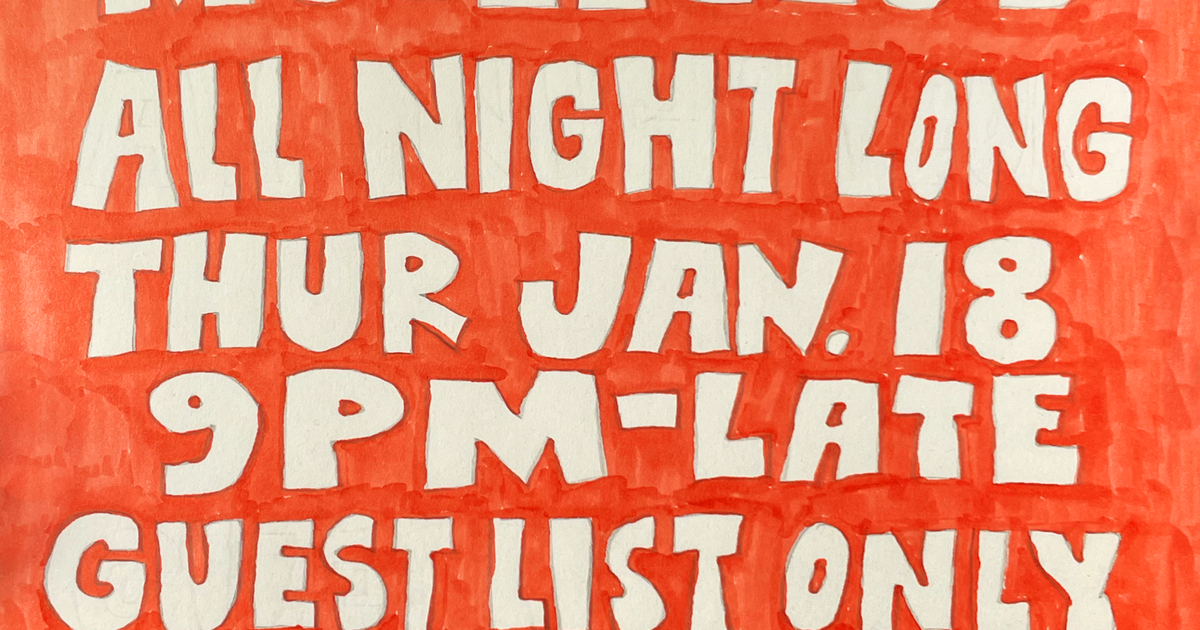 ALL NIGHT LONG
THUR JAN. 18
9PM-LATE
GUEST LIST ONLY